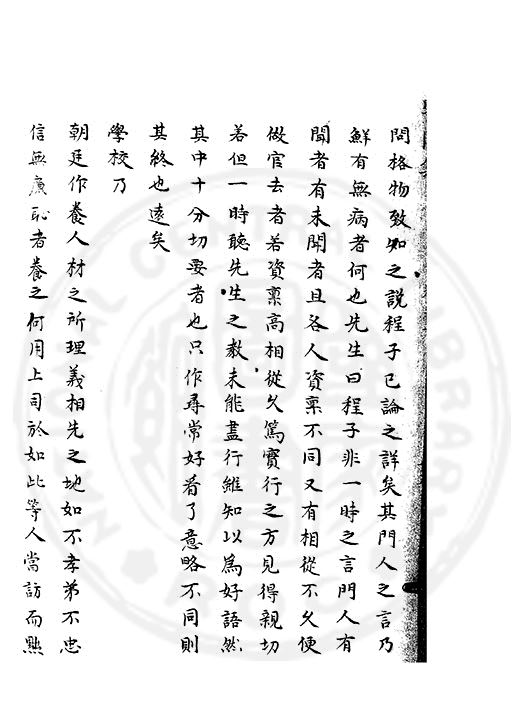 問格物致知之說程子已論之詳矣其門人之言乃
鮮有無病者何也先生曰程子非一時之言門人有
聞者有未聞者且各人資稟不同又有相從不久便
做官去者若資稟高相從久篤實行之方見得親切
若但一時聽先生之教未能盡行雖知以為好語然
其中十分切要者也只作尋常好看了意略不同則
其終也遠矣
學校乃
朝廷作養人材之所理義相先之地如不孝弟不忠
信無廉恥者養之何用上司於如此等人當訪而黜
NATIONAL CENTRAL LIBRARY